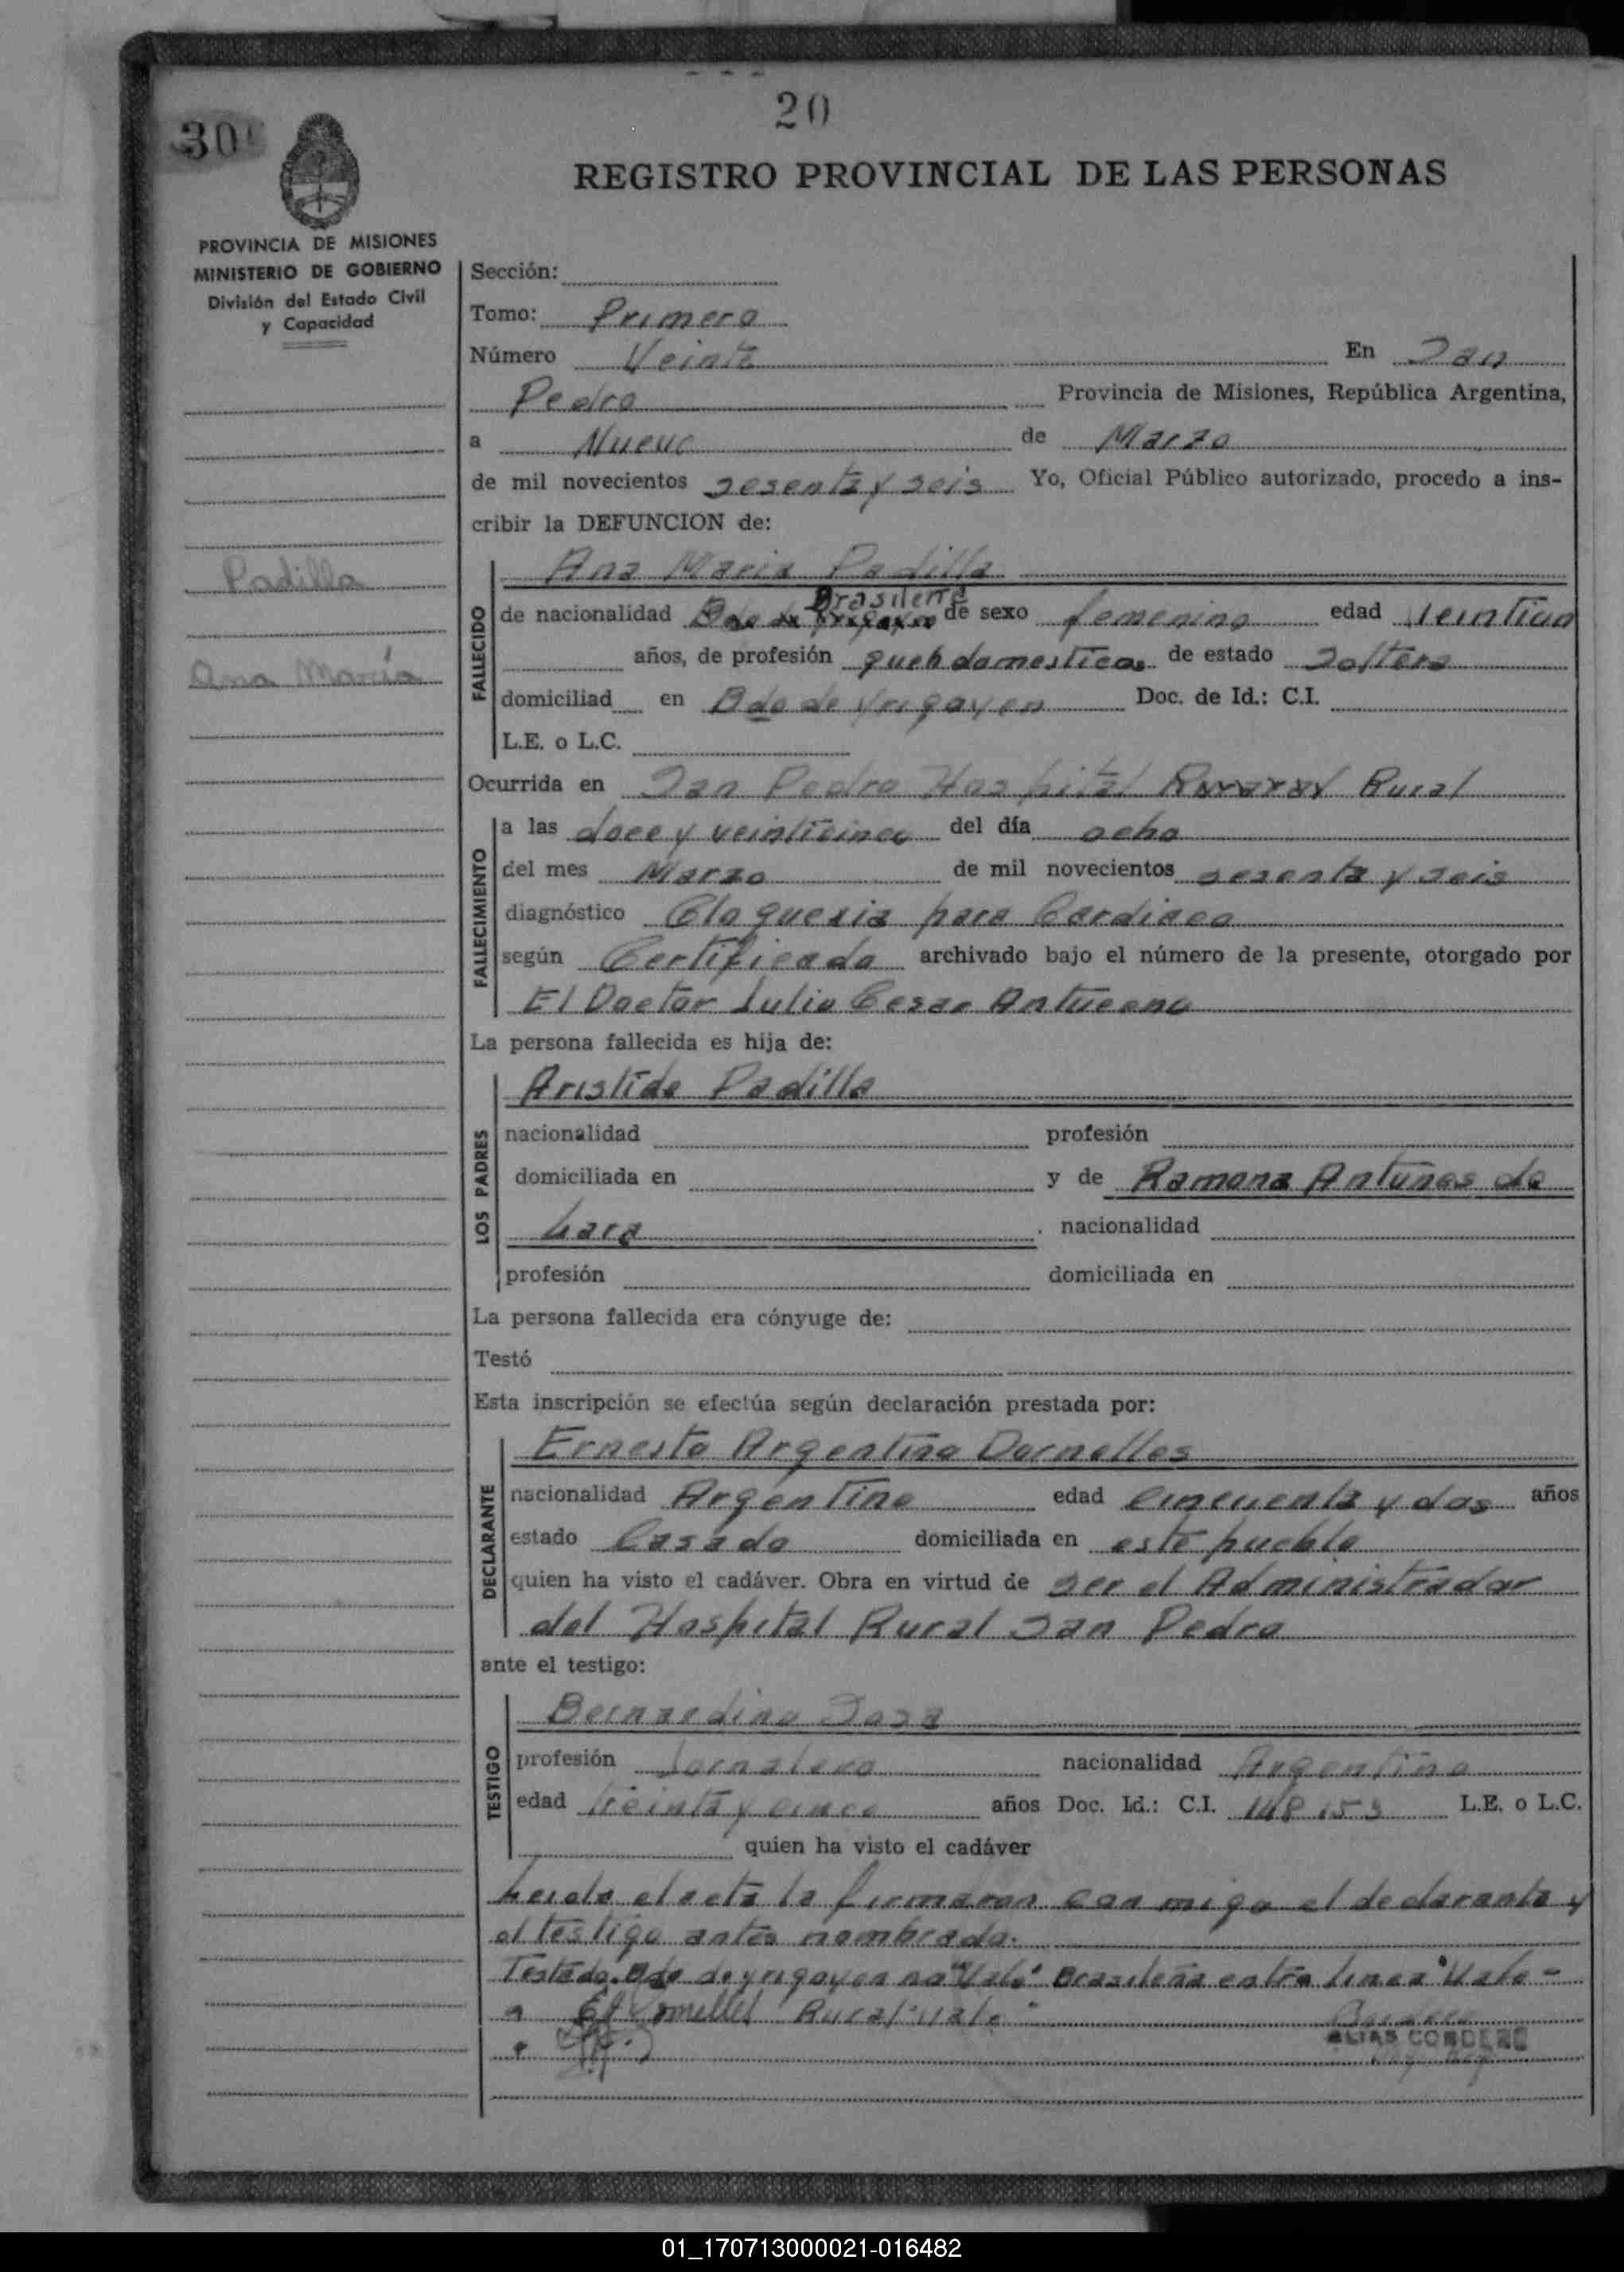 20
30
REGISTRO PROVINCIAL DE LAS PERSONAS
PROVINCIA DE MISIONES
MINISTERIO DE GOBIERNO
División del Estado Civil
y Capacidad
Padilla
Ana María
Sección:
Tomo: Primero
Número Veinte En San
Pedro Provincia de Misiones, República Argentina,
a Nueve de Marzo
de mil novecientos sesenta y seis Yo, Oficial Público autorizado, procedo a ins-
cribir la DEFUNCION de:
FALLECIDO
Ana Maria Padilla
Brasileña
de nacionalidad Bdo de Yrigoyen de sexo femenino edad veintiun
años, de profesión queh domesticos de estado Soltera
domiciliad en Bdo de Yrigoyen Doc. de Id.: C.I.
L.E. o L.C.
Ocurrida en San Pedro Hospital Rural
FALLECIMIENTO
a las doce y veinticinco del día ocho
del mes Marzo de mil novecientos sesenta y seis
diagnóstico paro Cardiaco
según Certificado archivado bajo el número de la presente, otorgado por
El Doctor Julio Cesar
La persona fallecida es hija de:
LOS PADRES
Aristide Padilla
nacionalidad profesión
domiciliada en y de Ramona Antunes de
Lara . nacionalidad
profesión domiciliada en
La persona fallecida era cónyuge de:
Testó
Esta inscripción se efectúa según declaración prestada por:
DECLARANTE
Ernesto Argentino Dornelles
nacionalidad Argentino edad cincuenta y dos años
estado Casado domiciliada en este pueblo
quien ha visto el cadáver. Obra en virtud de ser el Administrador
del Hospital Rural San Pedro
ante el testigo:
TESTIGO
Bernardino Sosa
profesión Jornalero nacionalidad Argentino
edad treinta y cinco años Doc. Id.: C.I. L.E. o L.C.
quien ha visto el cadáver
Leida el acta la firmaron con migo el declarante y
el testigo antes nombrado.
Testado Bdo de yrigoyen no "Vale" Brasileña entre linea "Vale -
Rural "vale"
ELIAS CORDERO
01_170713000021-016482